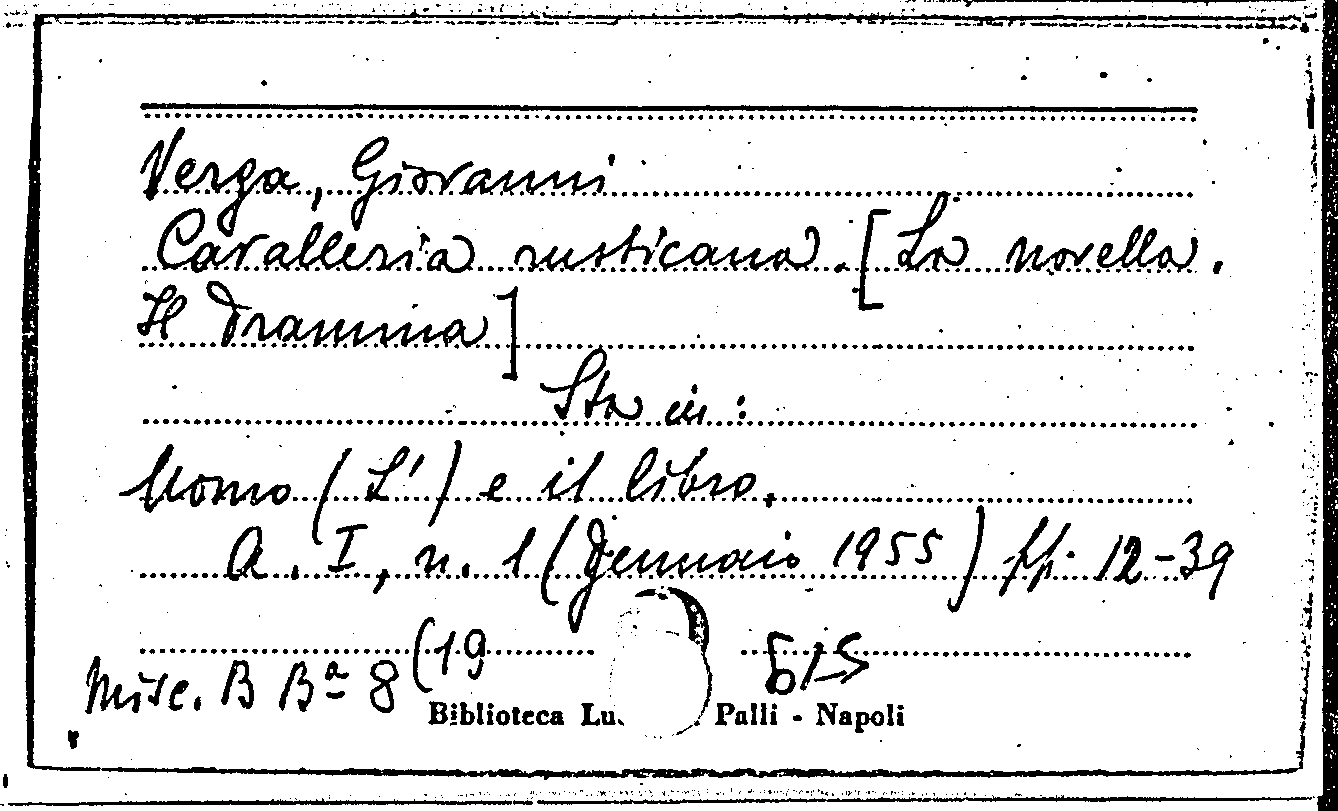 Verga, Giovanni
Cavalleria rusticana. [La novella.
Il Dramma]
Sta in:
Uomo (L') e il libro.
A. I, n. 1 (Gennaio 1955) pp. 12-39
Misc. B Bª 8 (19
Biblioteca Lu Palli - Napoli